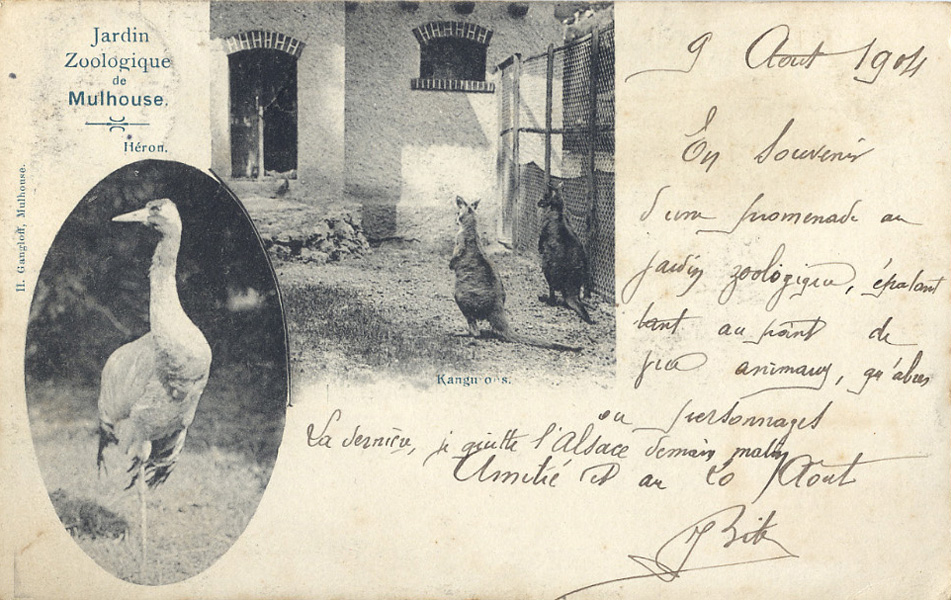 Jardin
Zoologique
de
Mulhouse.
Héron.
H. Gangloff, Mulhouse.
Kangurous.
9 Aout 1904
En Souvenir
d'une promenade au
jardin zoologique, épatant
tant au point de
animaux, qu'
ou personnages
La dernière, je quitte l'Alsace demain matin
Amitié et au 20 Aout